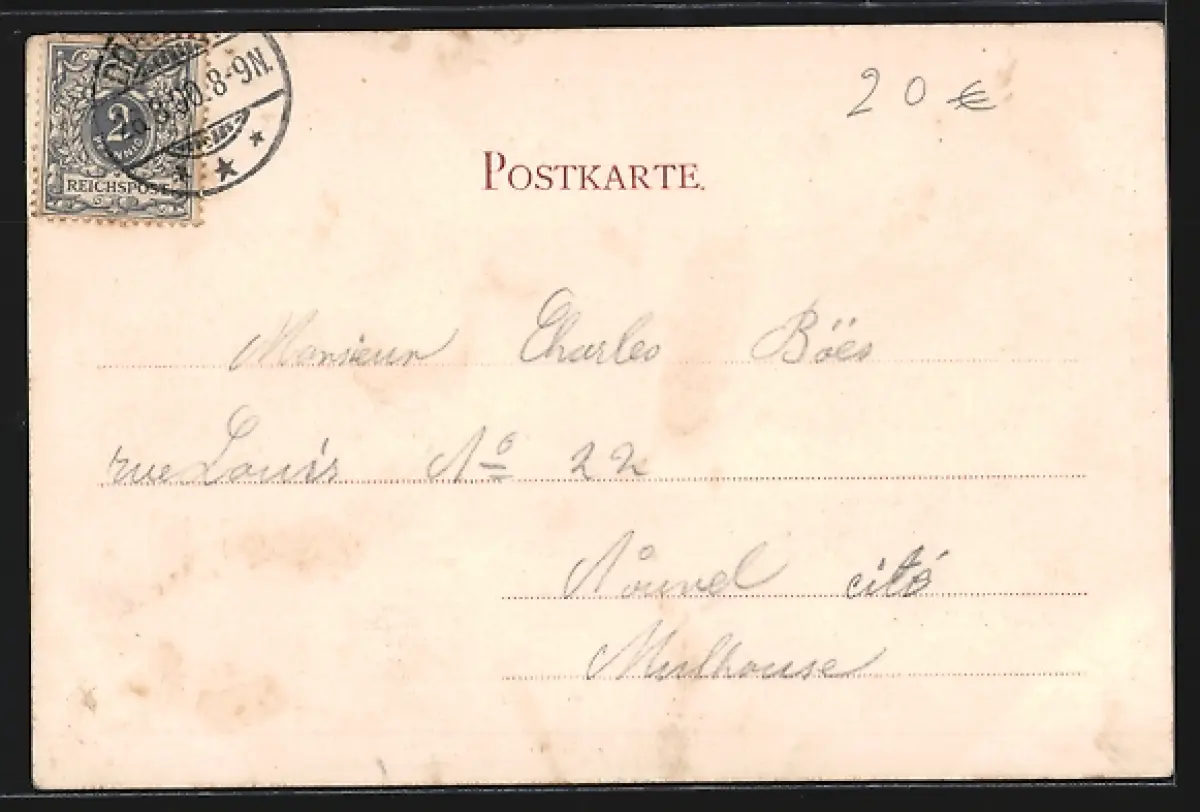 8-9N.
2
REICHSPOST
20 €
POSTKARTE.
Monsieur Charles Böes
rue Louis No 22
Nouvel cité
Mulhouse